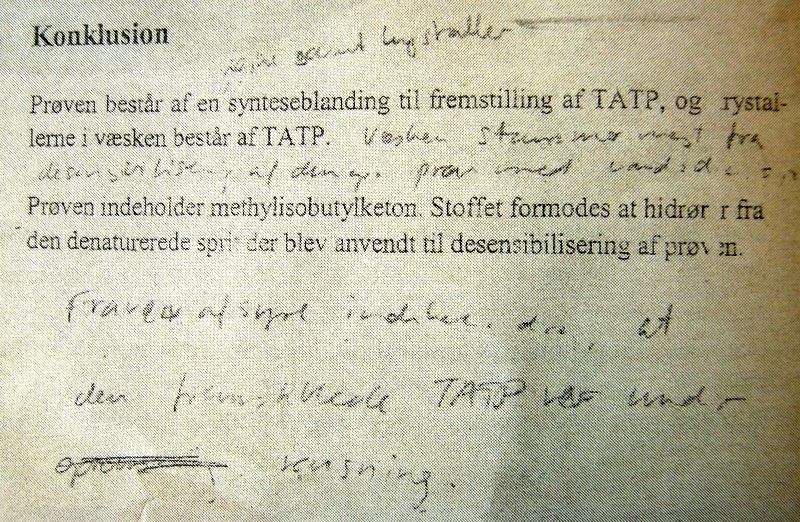 Konklusion
krystaller
Prøven består af en synteseblanding til fremstilling af TATP, og rystal-
lerne i væsken består af TATP. Væsken stammer mest fra
desensibilisering af den op. prøve med
Prøven indeholder methylisobutylketon. Stoffet formodes at hidrør r fra
den denaturerede sprit der blev anvendt til desensibilisering af prøven.
Fravær af syre at
den fremstillede TATP var und-
rensning.